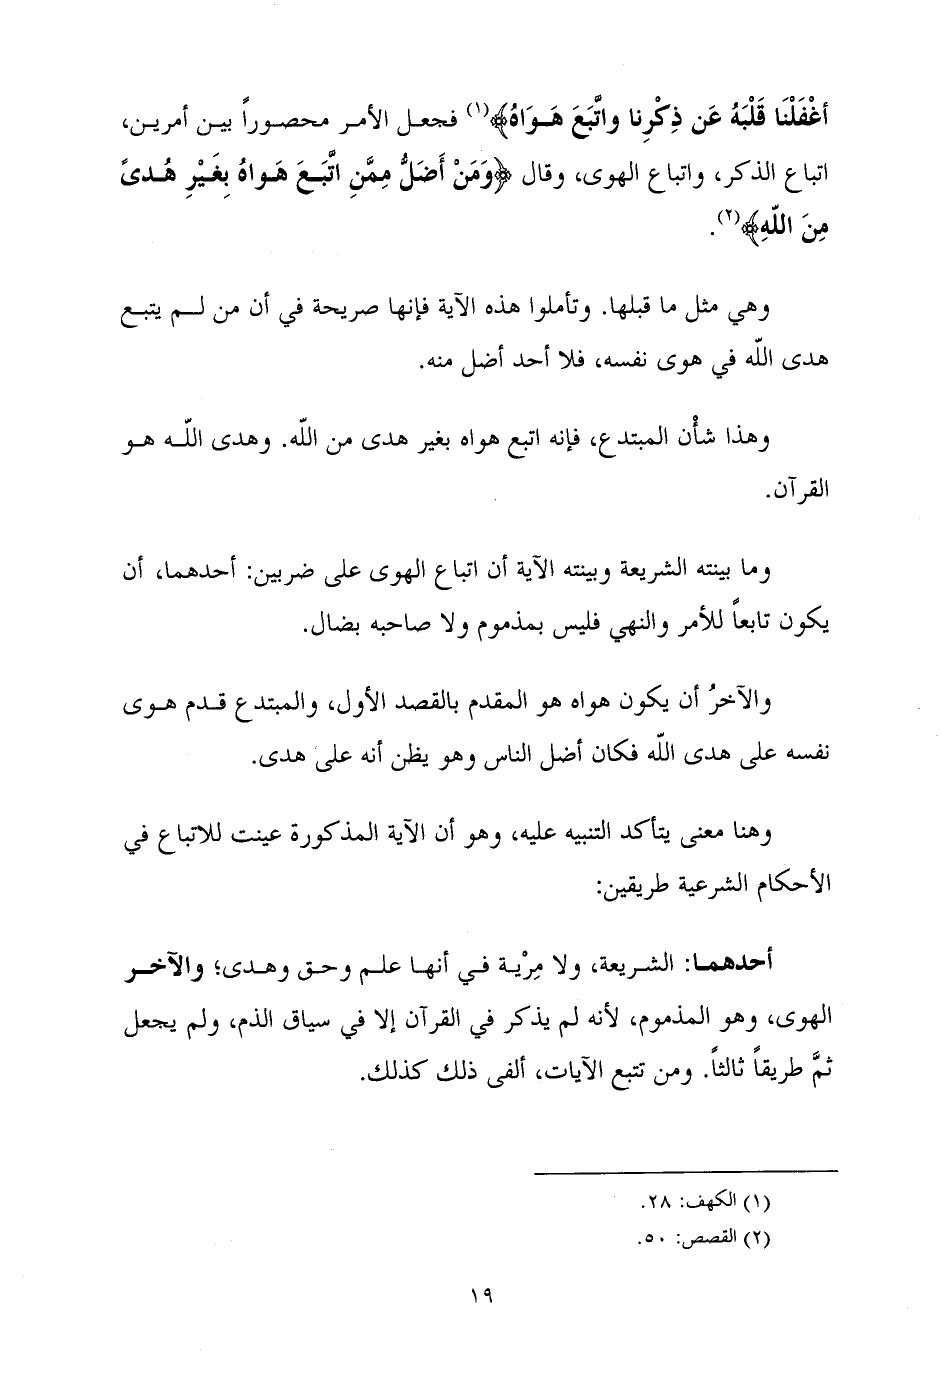 أغْفَلْنَا قَلْبَهُ عَن ذِكْرِنا واتَّبَعَ هَـوَاهُ﴾(١) فجعل الأمر محصوراً بين أمرين،
اتباع الذكر، واتباع الهوى، وقال ﴿وَمَنْ أَضَلُّ مِمَّنِ اتَّبَعَ هَواهُ بِغَيْرِ هُدىً
مِنَ اللّهِ﴾(٢).
وهي مثل ما قبلها. وتأملوا هذه الآية فإنها صريحة في أن من لم يتبع
هدى اللّه في هوى نفسه، فلا أحد أضل منه.
وهذا شأن المبتدع، فإنه اتبع هواه بغير هدى من اللّه. وهدى اللّه هو
القرآن.
وما بينته الشريعة وبينته الآية أن اتباع الهوى على ضربين: أحدهما، أن
يكون تابعاً للأمر والنهي فليس بمذموم ولا صاحبه بضال.
والآخرُ أن يكون هواه هو المقدم بالقصد الأول، والمبتدع قدم هوى
نفسه على هدى اللّه فكان أضل الناس وهو يظن أنه على هدى.
وهنا معنى يتأكد التنبيه عليه، وهو أن الآية المذكورة عينت للاتباع في
الأحكام الشرعية طريقين:
أحدهما: الشريعة، ولا مِرْية في أنها علم وحق وهدى؛ والآخر
الهوى، وهو المذموم، لأنه لم يذكر في القرآن إلا في سياق الذم، ولم يجعل
ثمَّ طريقاً ثالثاً. ومن تتبع الآيات، ألفى ذلك كذلك.
(١) الكهف: ٢٨.
(٢) القصص: ٥٠.
١٩